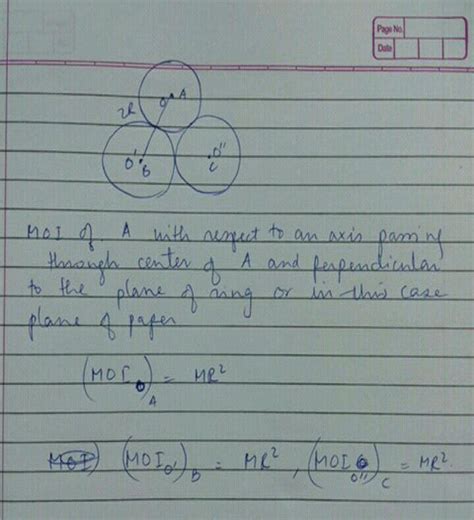 Page No.
Date
O A
2R
O' B
O'' C
MOI of A with respect to an axis passing
through center of A and perpendicular
to the plane of ring or in this case
plane of paper
(MOI O)A = MR²
MOI) (MOI O')B = MR², (MOI O'')C = MR²